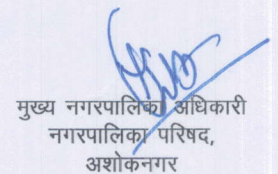 मुख्य नगरपालिका अधिकारी
नगरपालिका परिषद,
अशोकनगर